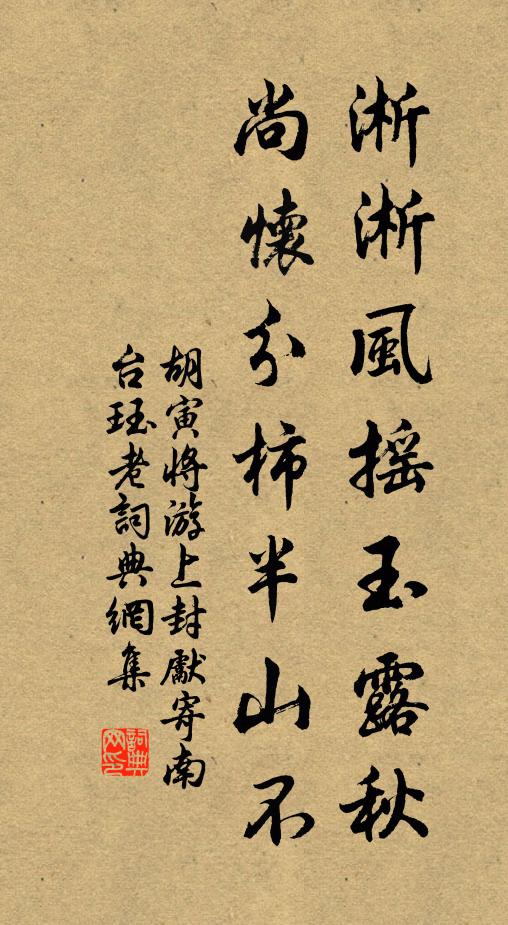 淅淅風摇玉露秋
尚懷分柿半山不
胡寅將游上封獻寄南
台珏老詞典網集
詞典網